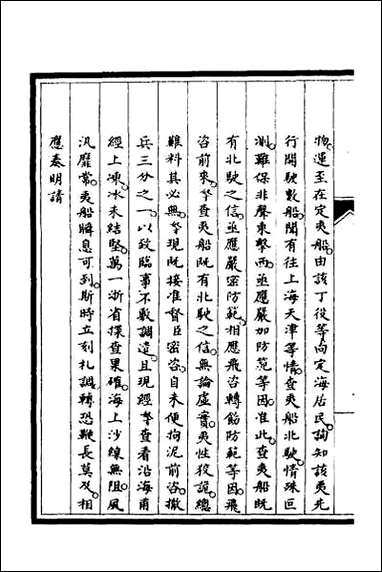 物。運至在定夷船。由該丁役等向定海居民。詢知該夷先
行開駛數船。聞有往上海天津等情。查夷船北駛。情殊叵
測。雖保非聲東擊西。亟應嚴加防範等因。准此。查夷船既
有北駛之信。亟應嚴密防範。相應飛咨轉飭防範等因。飛
咨前來。本查夷船既有北駛之信。無論虛實。夷性役詭。總
難料其必無。本現既接准督臣密咨。自未便拘泥前咨。撤
兵三分之一。以致臨事不敷調遣。且現經本查看沿海甫
經上凍。冰未結堅。萬一浙省探查果確。海上沙線無阻。風
汎靡常。夷船瞬息可到。斯時立刻札調。轉恐鞭長莫及。相
應奏明請